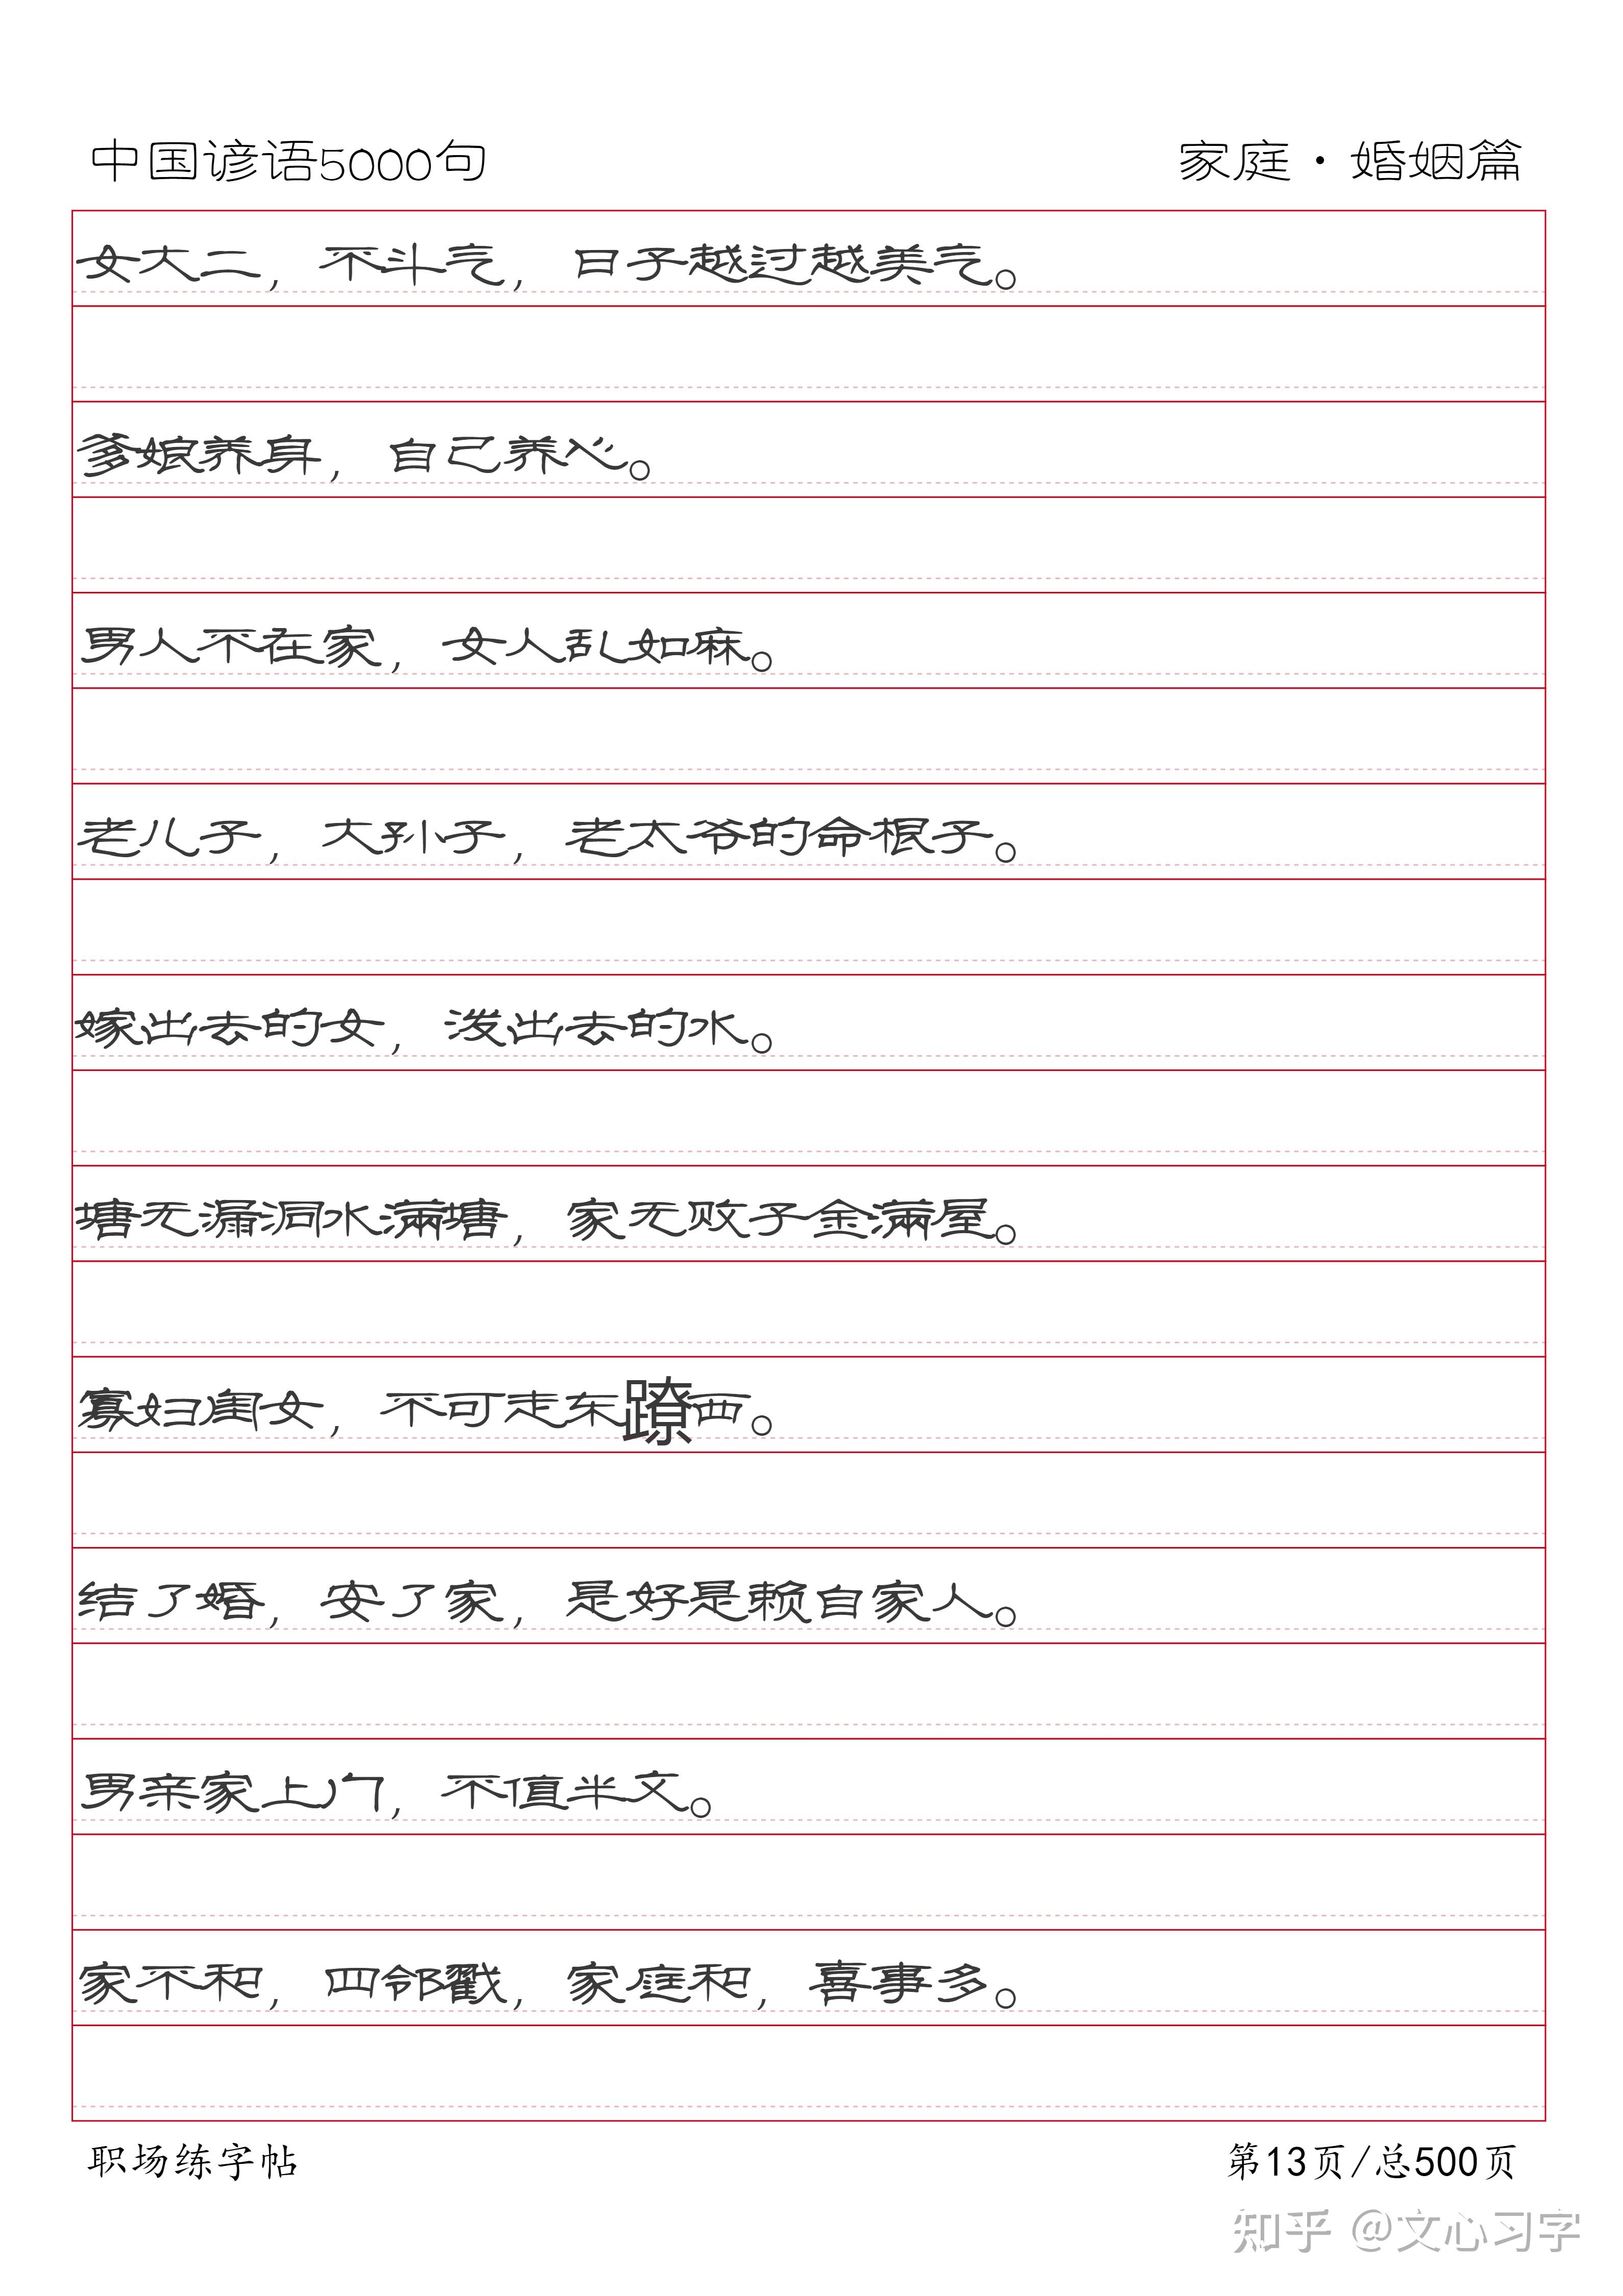 中国谚语5000句
家庭·婚姻篇
女大二，不斗气，日子越过越美气。
爹娘养身，自己养心。
男人不在家，女人乱如麻。
老儿子，大孙子，老太爷的命根子。
嫁出去的女，泼出去的水。
塘无漏洞水满塘，家无败子金满屋。
寡妇闺女，不可走东蹽西。
结了婚，安了家，是好是赖自家人。
男亲家上门，不值半文。
家不和，四邻戳，家庭和，喜事多。
职场练字帖
第13页/总500页
知乎 @文心习字